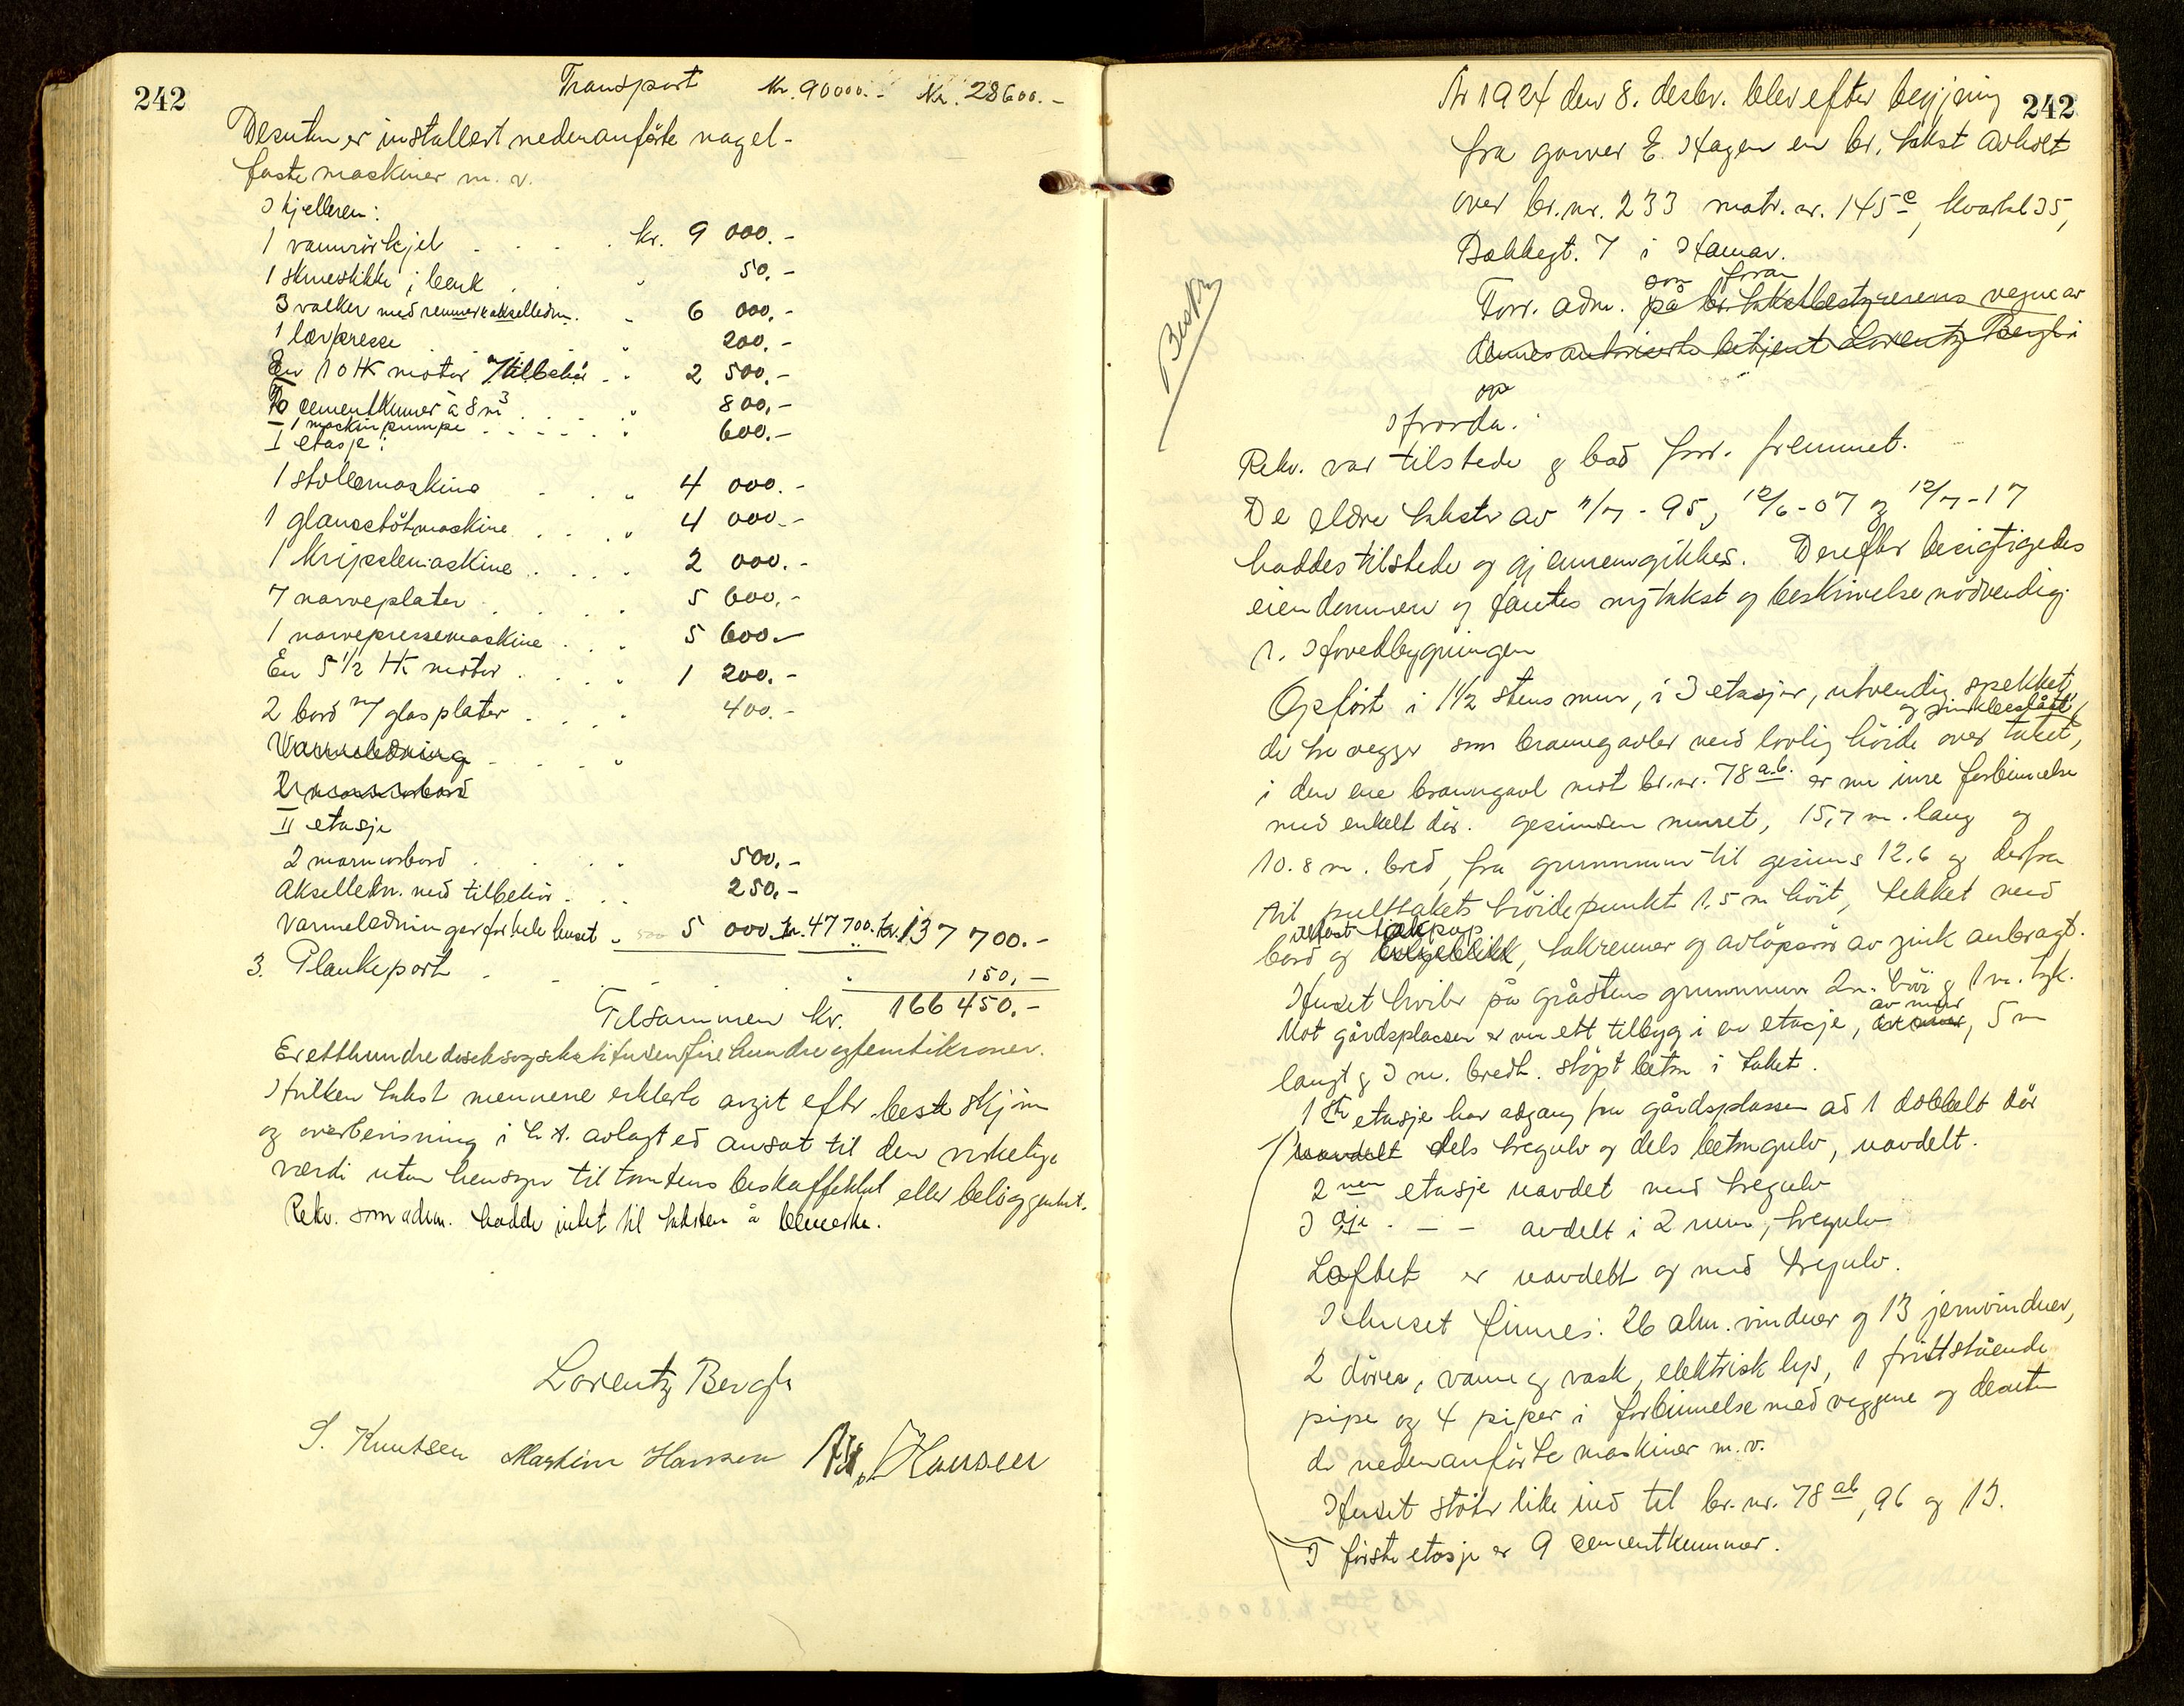 242
Transport Kr. 90000.- Kr. 28600.-
Desuten er installert nedenanförte nagel-
faste maskiner m. v.
I kjelleren:
1 vannrörkjel . . . . kr. 9 000.-
1 skruestikke i benk . . " 50.-
3 valker med remmer & akselledn. " 6 000.-
1 lærpresse . . . " 200.-
En 10 HK motor m/tilbehör . . 2 500.-
10 cementkummer à 8 m3 . . . " 800.-
1 maskinpumpe . . . . . " 600.-
I etasje:
1 stollemaskine . . . " 4 000.-
1 glansstötmaskine . . . " 4 000.-
1 Krispelemaskine . . . . 2 000.-
7 narveplater . . . . 5 600.-
1 narvepressemaskine . . . 5 600.-
En 5 1/2 HK motor . . . " 1 200.-
2 bord m/ glasplater . . . . 400.-
Varmeledning . . . . "
2 marmorbord
II etasje
2 marmorbord . . . . " 500.-
Akselledn. med tilbehör . . . 250.-
Varmeledninger for hele huset " 5 000.- kr. 47 700.- kr. 137 700.-
3. Plankeport . . . . . " 150.-
Tilsammen kr. 166 450.-
Er etthundredeseksogsekstitusenfirehundreogfemtikroner.
Hvilken takst mennene erklærte avgit efter beste skjön
og overbevisning i h. t. avlagt ed ansat til den virkelige
værdi uten hensyn til tomtens beskaffenhet eller beliggenhet.
Rekv. som adm. hadde intet til taksten å bemerke.
Lorentz Bergh
S. Knutsen Martin Hansen Hansen
242
År 1924 den 8. desbr. blev efter begjæring
fra garver E. Hagen en br. takst avholt
over br.nr. 233 matr. nr. 145 c, kvartal 35,
Bakkegt. 7 i Hamar.
som foran
Forr. adm. på br. takstbestyrerens vegne av
dennes autoriserte betjent Lorentz Bergh i
Beskr.
og
Hvorda:
Rekv. var tilstede og bad forr. fremmet.
De eldre takster av 11/7 - 95, 12/6 - 07 og 12/7 - 17
haddes tilstede og gjennemgikkes. Derefter besigtigedes
eiendommen og fantes ny takst og beskrivelse nödvendig.
1. Hovedbygningen
Opfört i 1 1/2 stens mur, i 3 etasjer, utvendig spekket,
og sinkbeslåtte
de tre vegger som branngavler med lovlig höide over taket,
i den ene branngavl mot br.nr. 78 a.b. er nu inre forbinnelse
med enkelt dör. Gesimsen muret, 15,7 m. lang og
10.8 m. bred, fra grunnmur til gesims 12.6 og derfra
til pulttakets höidepunkt 1.5 m höit, tekket med
takpap
bord og bølgeblikk, takrenner og avlöpsrör av zink anbragt.
Huset hviler på gråstens grunnmur 2 m. höi & 1 m. tyk.
av mur
Mot gårdsplassen er nu ett tilbyg i en etasje, 5 m
langt & 3 m. bredt. Stöpt beton i taket.
1 ste etasje har adgang fra gårdsplassen ad 1 dobbelt dör
uavdelt dels tregulv og dels betongulv, uavdelt.
2 nen etasje uavdelt med tregulv
3 dje . — — avdelt i 2 rum, tregulv
Loftet er uavdelt og med tregulv.
I huset finnes: 26 alm. vinduer og 13 jernvinduer,
2 dörer, vann og vask, elektrisk lys, 1 frittstående
pipe og 4 piper i forbinnelse med veggene og desuten
de nedenanförte maskiner m.v.
Huset stöter like ind til br. nr. 78 ab, 96 og 13.
I förste etasje er 9 cementkummer.